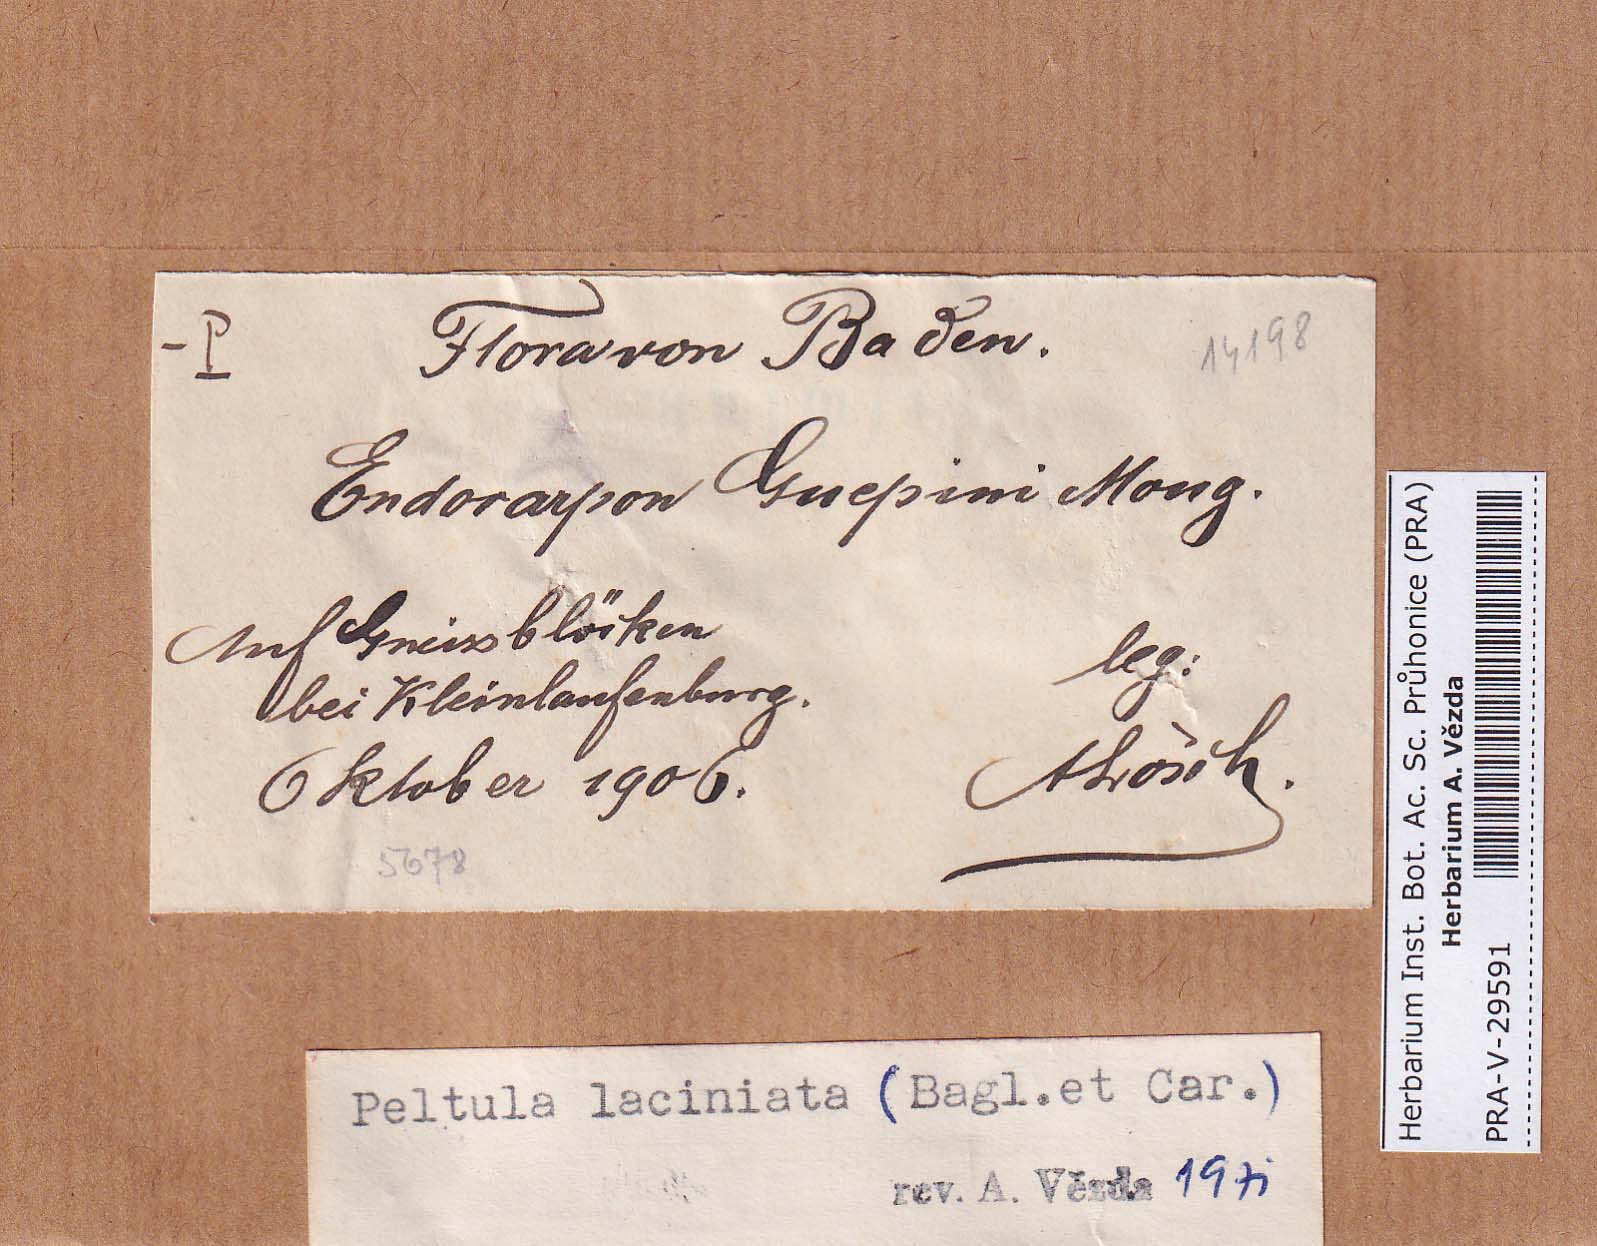 -P
Flora von Baden.
14198
Endocarpon Guepini Moug.
Auf Gneissblöcken
bei Kleinlaufenburg.
Oktober 1906.
leg:
A Lösch.
5678
Herbarium Inst. Bot. Ac. Sc. Průhonice (PRA)
Herbarium A. Vězda
PRA-V-29591
Peltula laciniata (Bagl.et Car.)
rev. A. Vězda